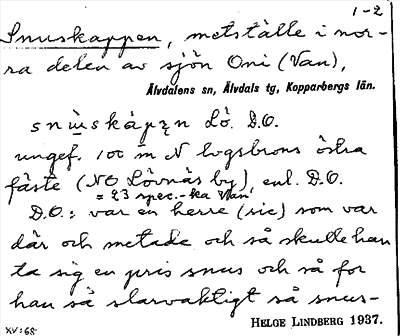 1-2
Snuskappen, metställe i nor-
ra delen av sjön Oni (Van),
Älvdalens sn, Älvdals tg, Kopparbergs län.
snùskàpen Lö. D.O.
ungef. 100 m N lvgsbrons östra
fäste (NO Lövnäs by), enl. D.O.
= 23 spec.-ka Van.
D.O.: var en herre (sic) som var
där och metade och så skulle han
ta sig en pris snus och så for
han så slarvaktigt så snus-
HELGE LINDBERG 1937.
XV:68